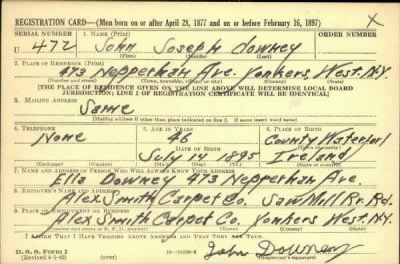 REGISTRATION CARD—(Men born on or after April 28, 1877 and on or before February 16, 1897)
SERIAL NUMBER 1. NAME (Print) ORDER NUMBER
U 472 John Joseph Downey
(First) (Middle) (Last)
2. PLACE OF RESIDENCE (Print)
473 Nepperhan Ave. Yonkers, West. N.Y.
(Number and street) (Town, township, village, or city) (County) (State)
[THE PLACE OF RESIDENCE GIVEN ON THE LINE ABOVE WILL DETERMINE LOCAL BOARD
JURISDICTION; LINE 2 OF REGISTRATION CERTIFICATE WILL BE IDENTICAL]
3. MAILING ADDRESS
Same
[Mailing address if other than place indicated on line 2. If same insert word same]
4. TELEPHONE 5. AGE IN YEARS 6. PLACE OF BIRTH
None 46 County Waterford
DATE OF BIRTH
July 14 1895 Ireland
(Exchange) (Number) (Mo.) (Day) (Yr.) (State or country)
7. NAME AND ADDRESS OF PERSON WHO WILL ALWAYS KNOW YOUR ADDRESS
Downey 473 Nepperhan Ave.
8. EMPLOYER'S NAME AND ADDRESS
Alex Smith Carpet Co. Saw Mill Rv. Rd.
9. PLACE OF EMPLOYMENT OR BUSINESS
Alex Smith Carpet Co. Yonkers West. N.Y.
(Number and street or R. F. D. number) (Town) (County) (State)
I AFFIRM THAT I HAVE VERIFIED ABOVE ANSWERS AND THAT THEY ARE TRUE.
D. S. S. Form 1
(Revised 4-1-42) (over)
John Downey